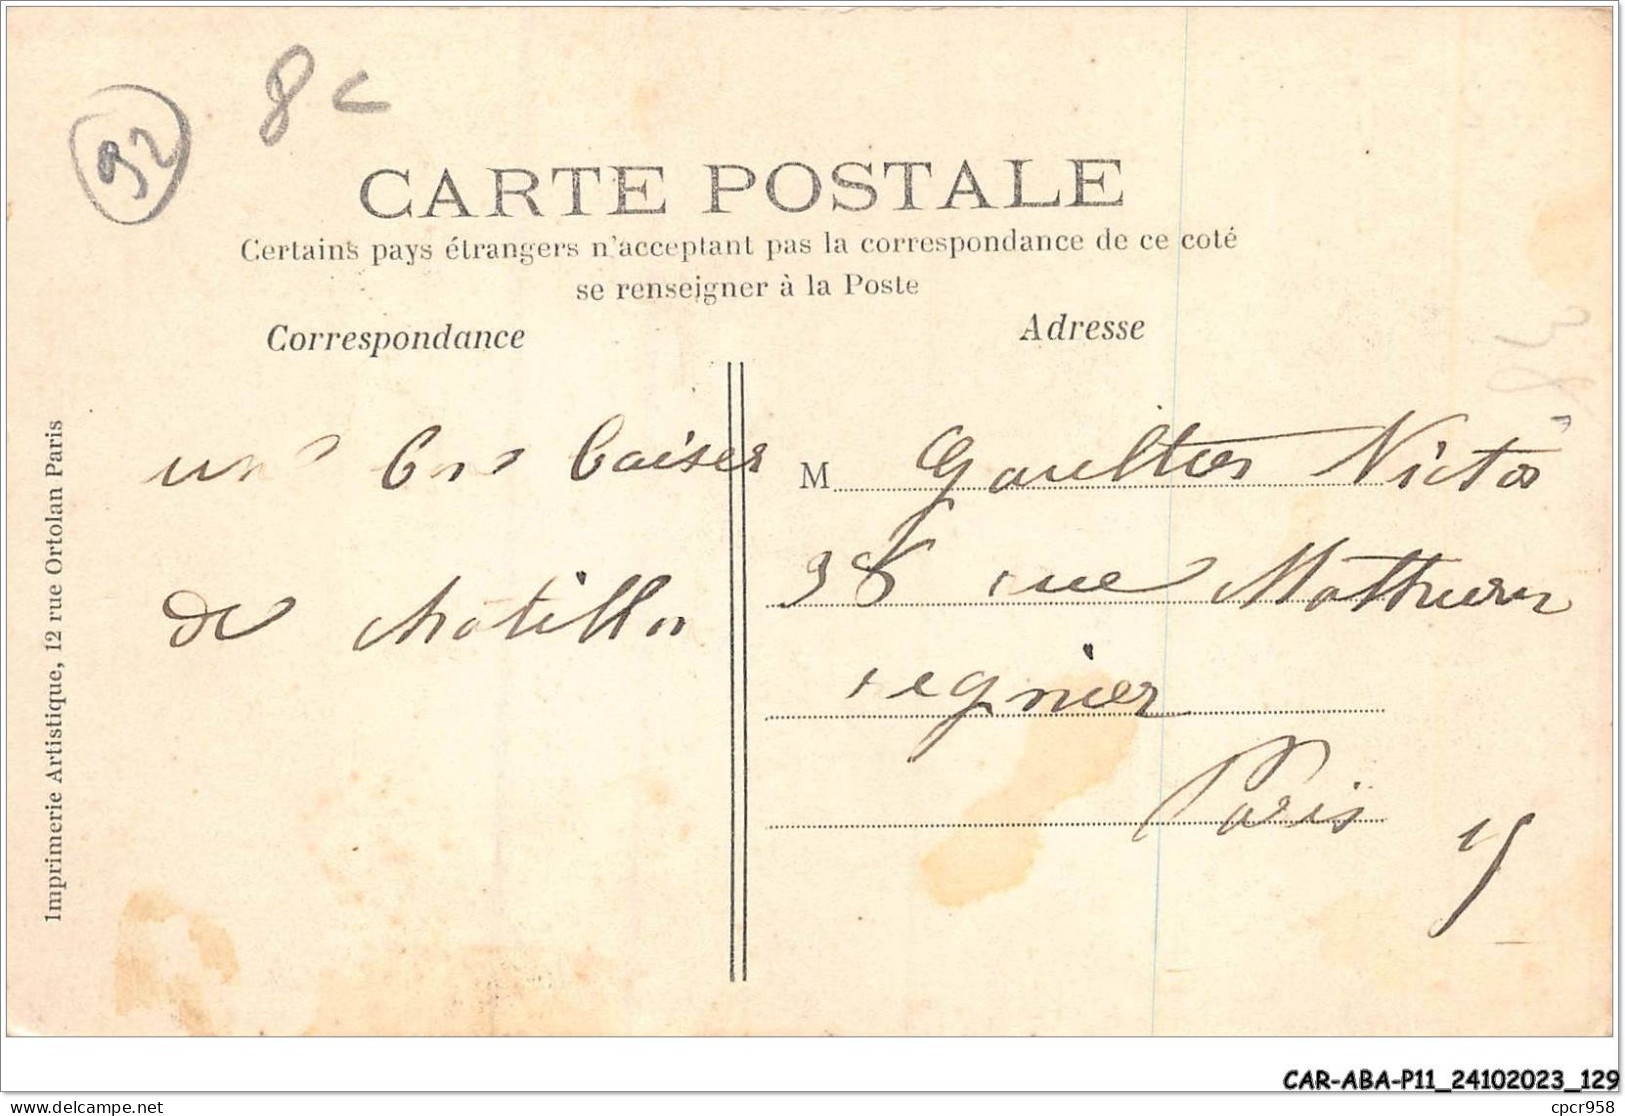 92
8c
CARTE POSTALE
Certains pays étrangers n'acceptant pas la correspondance de ce coté
se renseigner à la Poste
Correspondance
Adresse
38
un bon baiser
de chatillon
M Gaultier Victor
38 rue Mathurin
regnier
Paris
15
Imprimerie Artistique, 12 rue Ortolan Paris
CAR-ABA-P11_24102023_129
delcampe.net
cpcr958